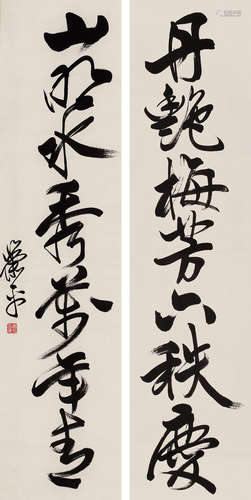 丹艷梅芳六秩慶
山明水秀萬年青